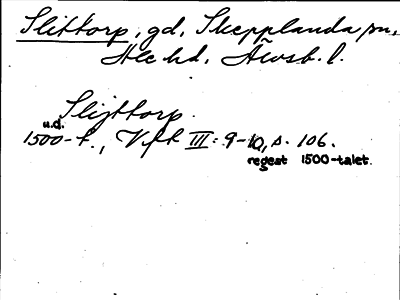 Slittorp, gd, Skepplanda sn,
Ale hd, Älvsb. l.
Slijttorp.
u.d.
1500-t., Vft III: 9-10, s. 106.
regest 1500-talet.